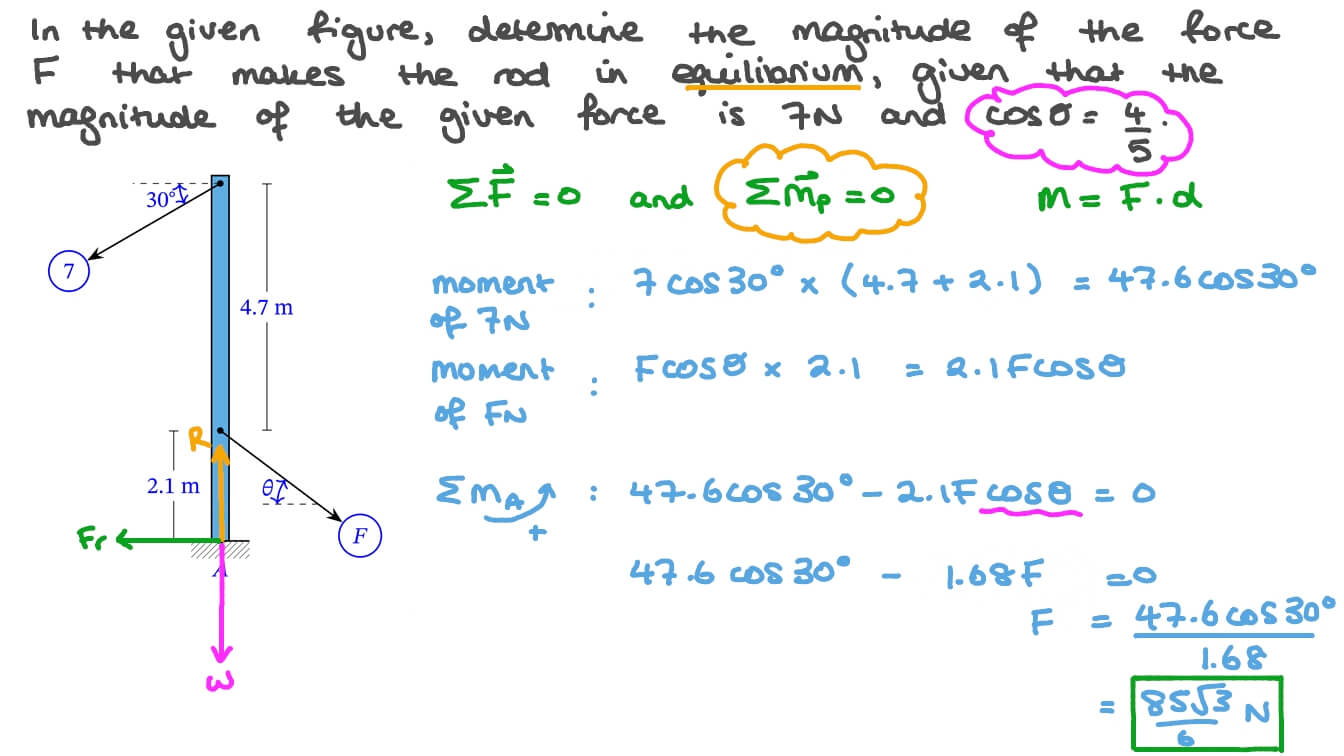 In the given figure, determine the magnitude of the force
F that makes the rod in equilibrium, given that the
magnitude of the given force is 7N and cosθ = 4/5.
ΣF⃗ = 0 and ΣM⃗ₚ = 0 M = F·d
30°
7
4.7 m
moment of 7N : 7 cos 30° × (4.7 + 2.1) = 47.6 cos 30°
moment of FN : F cos θ × 2.1 = 2.1F cos θ
R
2.1 m
θ
ΣM_A + : 47.6 cos 30° − 2.1F cos θ = 0
Fr
F
A
47.6 cos 30° − 1.68F = 0
F = 47.6 cos 30° / 1.68
W
= 85√3/6 N